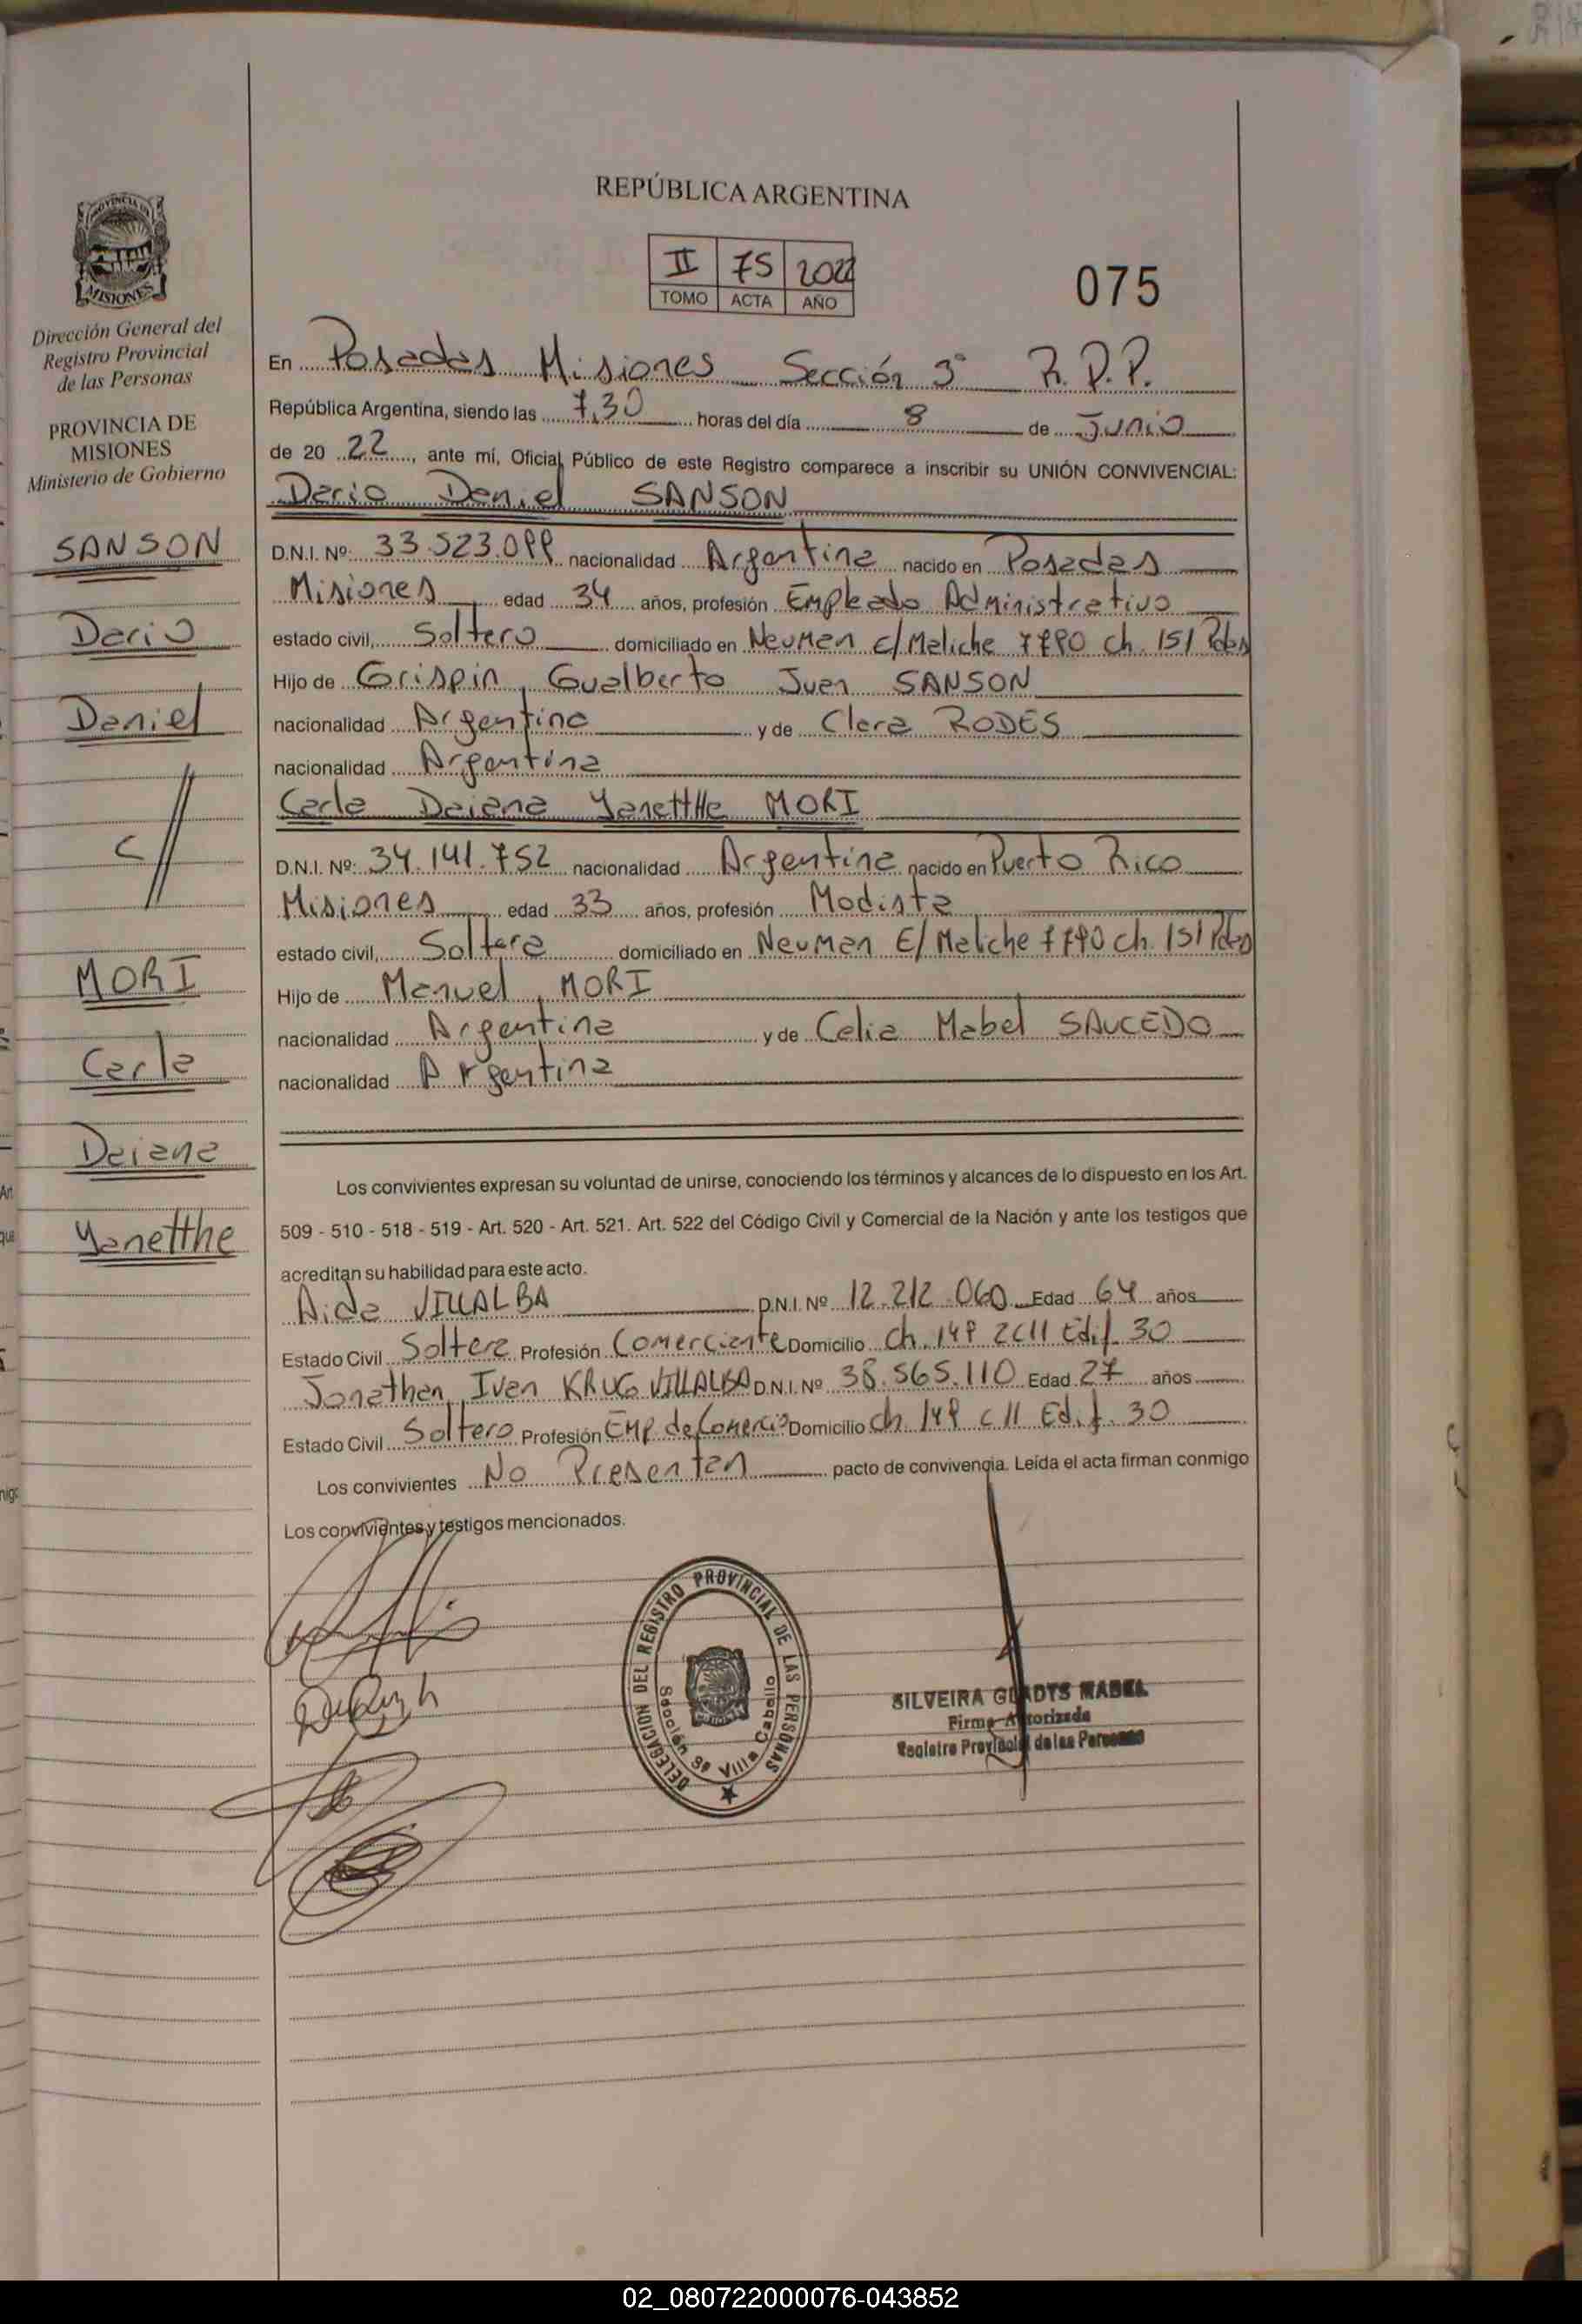 REPÚBLICA ARGENTINA
II 75 2022
TOMO ACTA AÑO
075
MISIONES
Dirección General del
Registro Provincial
de las Personas
PROVINCIA DE
MISIONES
Ministerio de Gobierno
SANSON
Dario
Daniel
c//
MORI
Carla
Daiana
Yanetthe
En Posadas Misiones Sección 3° R.P.P.
República Argentina, siendo las 7,30 horas del día 8 de Junio
de 20 22, ante mí, Oficial Público de este Registro comparece a inscribir su UNIÓN CONVIVENCIAL:
Dario Daniel SANSON
D.N.I. Nº 33.523.099 nacionalidad Argentina nacido en Posadas
Misiones edad 34 años, profesión Empleado Administrativo
estado civil, Soltero domiciliado en Neuman c/Maliche 7790 ch. 151 Pdas
Hijo de Crispin, Gualberto Juan SANSON
nacionalidad Argentino y de Clara RODES
nacionalidad Argentina
Carla Daiana Yanetthe MORI
D.N.I. Nº: 34.141.752 nacionalidad Argentina nacido en Puerto Rico
Misiones edad 33 años, profesión Modista
estado civil, Soltera domiciliado en Neuman E/ Maliche 7790 ch. 151 Pdas
Hijo de Manuel, MORI
nacionalidad Argentina y de Celia Mabel SAUCEDO
nacionalidad Argentina
Los convivientes expresan su voluntad de unirse, conociendo los términos y alcances de lo dispuesto en los Art.
509 - 510 - 518 - 519 - Art. 520 - Art. 521. Art. 522 del Código Civil y Comercial de la Nación y ante los testigos que
acreditan su habilidad para este acto.
Aida VILLALBA D.N.I. Nº 12.212.060 Edad 64 años
Estado Civil Soltera Profesión Comerciante Domicilio ch. 149 2C11 Edif. 30
Jonathan, Ivan KRUG VILLALBA D.N.I. Nº 38.565.110 Edad 27 años
Estado Civil Soltero Profesión Emp. de Comercio Domicilio ch 149 c11 Edif. 30
Los convivientes No Presentan pacto de convivencia. Leída el acta firman conmigo
Los convivientes y testigos mencionados.
DELEGACION DEL REGISTRO PROVINCIAL DE LAS PERSONAS
Sección 3ª Villa Cabello
SILVEIRA GLADYS MABEL
Firma Autorizada
Registro Provincial de las Personas
02_080722000076-043852